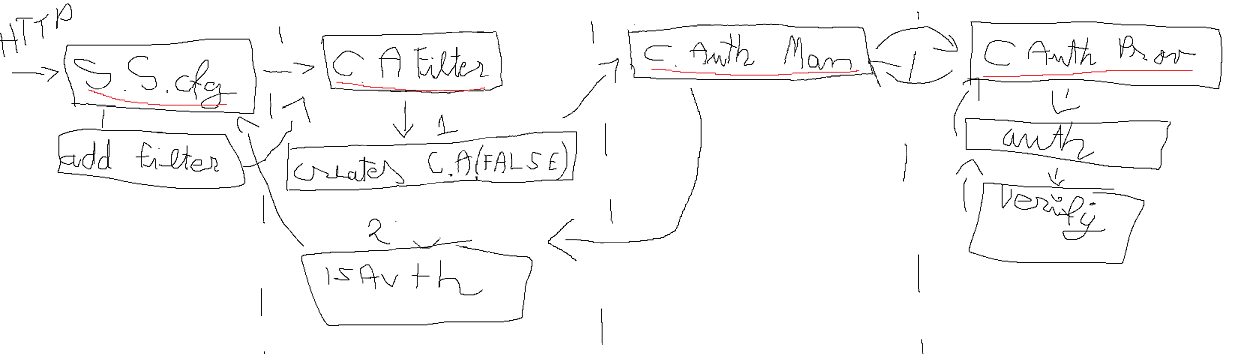 HTTP
S.S.cfg
add filter
C.A Filter
1
creates C.A(FALSE)
2
isAuth
C. Auth Man
C Auth Prov
auth
verify